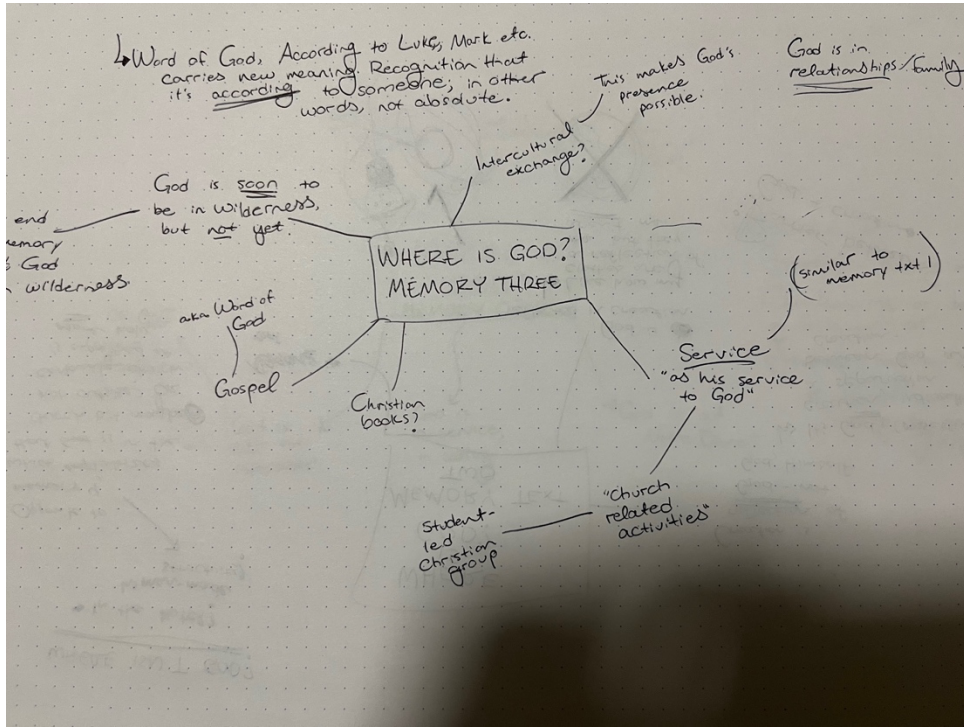 ↳Word of God, According to Luke, Mark etc.
carries new meaning. Recognition that
it's according to someone; in other
words, not absolute.
This makes God's
presence
possible.
God is in
relationships/family
Intercultural
exchange?
God is soon to
be in wilderness,
but not yet.
end
emory
God
wilderness.
WHERE IS GOD?
MEMORY THREE
(similar to
memory txt 1)
aka Word of
God
Gospel
Christian
books?
Service
"as his service
to God"
"Church
related
activities"
Student-
led
Christian
group